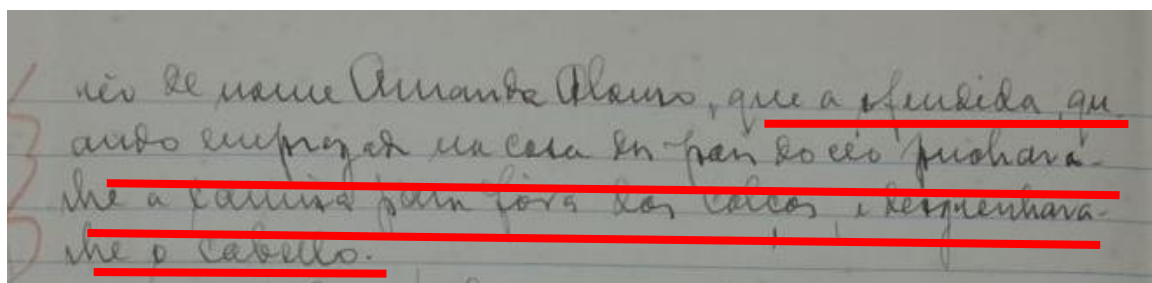 réo de nome Amanda Alonso, que a ofendida, qu
ando empregada na casa dos paes do réo puchara-
lhe a camisa para fóra das calças e desgrenhara-
lhe o cabello.